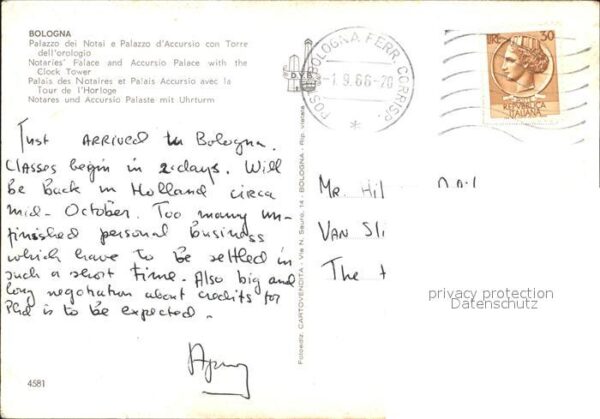 BOLOGNA
Palazzo dei Notai e Palazzo d'Accursio con Torre
dell'orologio
Notaries' Falace and Accursio Palace with the
Clock Tower
Palais des Notaires et Palais Accursio avec la
Tour de l'Horloge
Notares und Accursio Palaste mit Uhrturm
Just ARRIVED in Bologna.
Classes begin in 2 days. Will
be back in Holland circa
mid- October. Too many un-
finished personal business
which have to be settled in
such a short time. Also big and
long negotiation about credits for
Phd is to be expected.
4581
D.V.B.
Fotoediz. CARTOVENDITA - Via N. Sauro, 14 - BOLOGNA - Rip. vietata
BOLOGNA FERR. CORRISP.
-1.9.66-20
LIRE 30
REPVBBLICA
ITALIANA
Mr. Hil
VAN Sli
The
privacy protection
Datenschutz